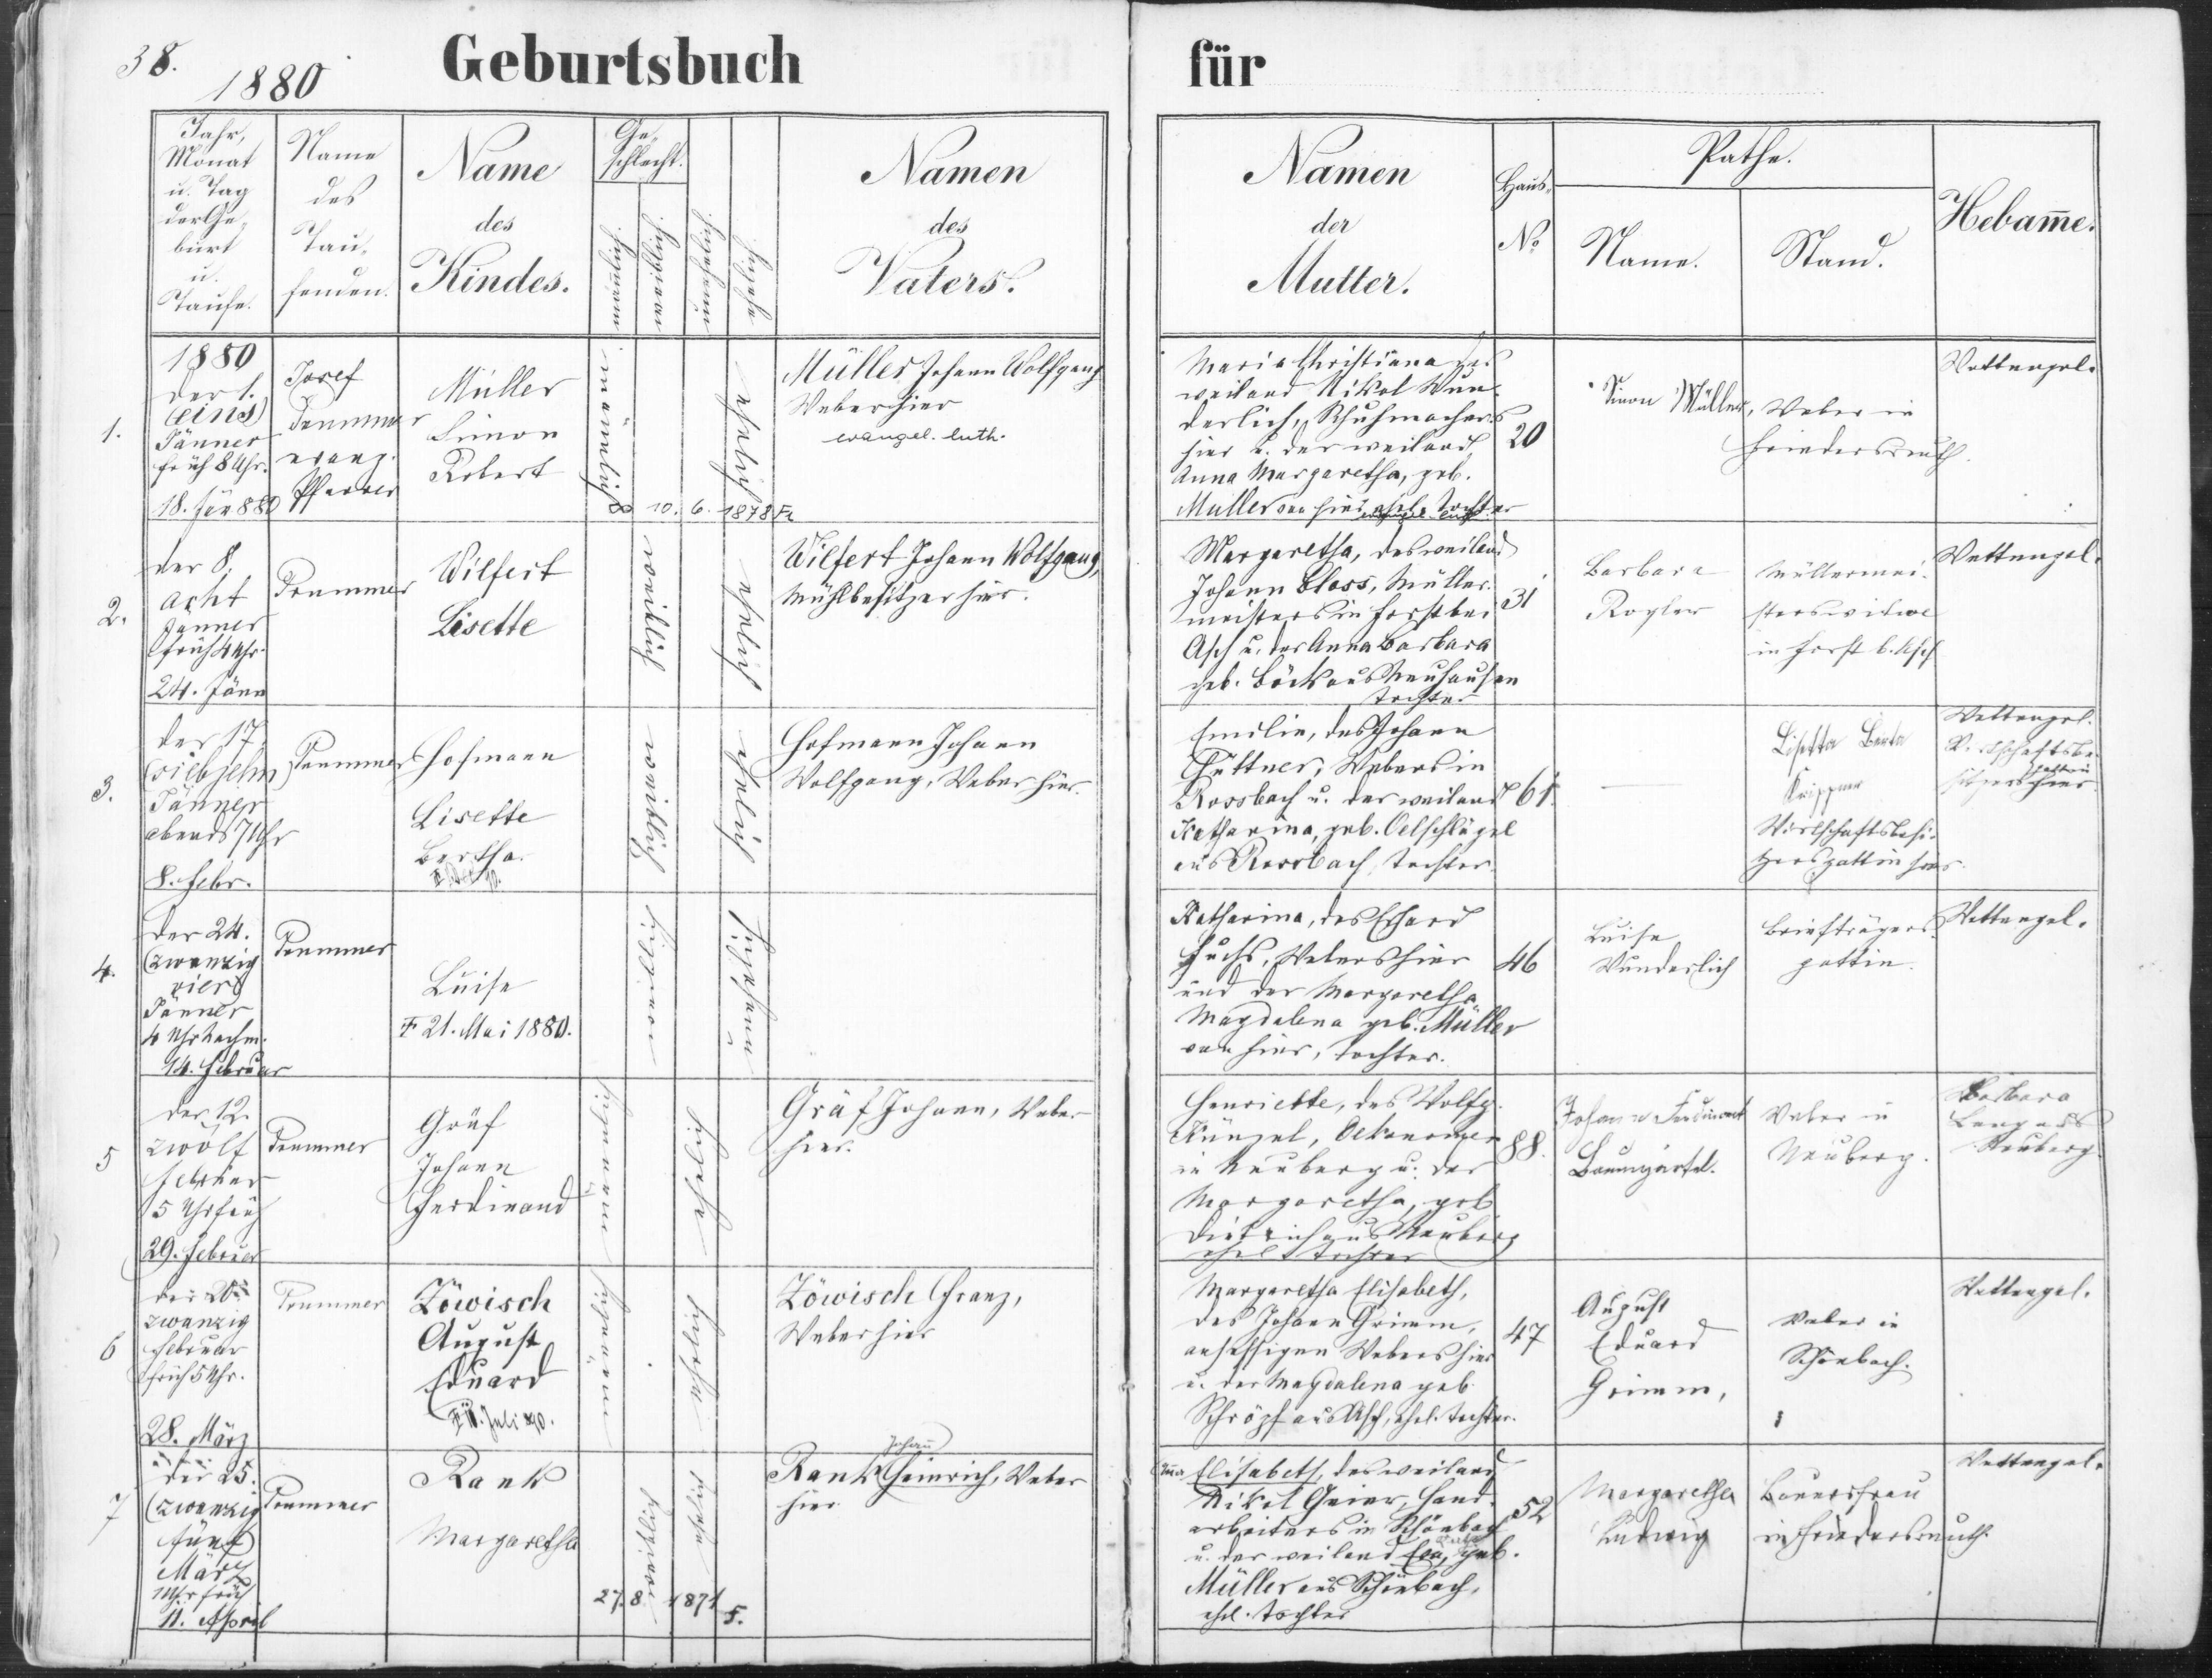 38.
1880
Geburtsbuch
für
Jahr,
Monat
u. Tag
der Ge-
burt
u.
Taufe.
Name
des
Tau-
fenden.
Name
des
Kindes.
Ge-
schlecht.
männlich.
weiblich.
unehelich.
ehelich.
Namen
des
Vaters.
Namen
der
Mutter.
Haus-
No
Pathe.
Name.
Stand.
Hebam̅e.
1.
1880
der 1.
(eins)
Jänner
früh 8 Uhr.
18. Jän 880
Josef
Trummer
evang.
Pfarrer
Müller
Simon
Robert
männlich
ehelich
10. 6. 1878
Müller Johann Wolfgang
Weber hier
evangel. luth.
Maria Christiana des
weiland Nikol Wun-
derlich, Schuhmachers
hier u. der weiland
Anna Margaretha, geb.
Müller von hier ehel. Tochter
20
Simon Müller,
Weber in
Friedersreuth.
Wettengel.
2.
der 8.
acht
Jänner
früh 4 Uhr.
24. Jänn
Trummer
Wilfert
Lisette
weiblich
ehelich
Wilfert Johann Wolfgang,
Mühlbesitzer hier.
Margaretha, des weiland
Johann Bloss, Müller-
meisters in Forst bei
Asch u. der Anna Barbara
geb. Böck aus Neuhausen
Tochter
31
Barbara
Rogler
Müllermei-
sterswitwe
in Forst b. Asch
Wettengel.
3.
der 17
(siebzehn)
Jänner
abends 7 Uhr
8. Febr.
Trummer
Hofmann
Lisette
Bertha.
weiblich
ehelich
Hofmann Johann
Wolfgang, Weber hier.
Emilie, des Johann
Hüttner, Webers in
Rossbach u. der weiland
Katharina, geb. Oelschlägel
aus Rossbach, Tochter.
61.
—
Lisetta Berta
Krippner
Wirtschaftsbesi-
tzersgattin hier.
Wettengel.
4.
der 24.
(zwanzig
vier)
Jänner
4 Uhr Nachm.
14. Februar
Trummer
Luise
† 21. Mai 1880.
weiblich
unehelich
Katharina, des Erhard
Fuchs, Webers hier
und der Margaretha
Magdalena geb. Müller
von hier, Tochter.
46
Luise
Wunderlich
Briefträgers-
gattin.
Wettengel.
5
der 12.
zwölf
Februar
5 Uhr früh
29. Februar
Trummer
Gräf
Johann
Ferdinand
männlich
ehelich
Gräf Johann, Weber
hier.
Henriette, des Wolfg.
Künzel, Oekonomen
in Neuberg u. der
Margaretha, geb
Dietrich aus Neuberg
ehel Tochter
88.
Johann Ferdinand
Baumgärtel.
Weber in
Neuberg.
Barbara
Lang aus
Neuberg.
6
der 20
zwanzig
Februar
früh 5 Uhr.
28. März
Trummer
Zöwisch
August
Eduard
männlich
ehelich
Zöwisch Franz,
Weber hier
Margaretha Elisabeth,
des Johann Grimm,
ansässigen Webers hier
u. der Magdalena geb.
Schröpf aus Asch, ehel. Tochter.
47
August
Eduard
Grimm,
Weber in
Schönbach.
Wettengel.
7
der 25.
(zwanzig
fünf)
März
1 Uhr früh
11. April
Trummer
Rank
Margaretha
weiblich
ehelich
27. 8. 1871
Johann
Rank Heinrich, Weber
hier
Elisabeth, des weiland
Nikol Geier, Hand-
arbeiters in Schönbach
u. der weiland Eva, geb.
Müller aus Schönbach,
ehel. Tochter
52
Margaretha
Ludwig
Bauersfrau
in Friedersreuth.
Wettengel.